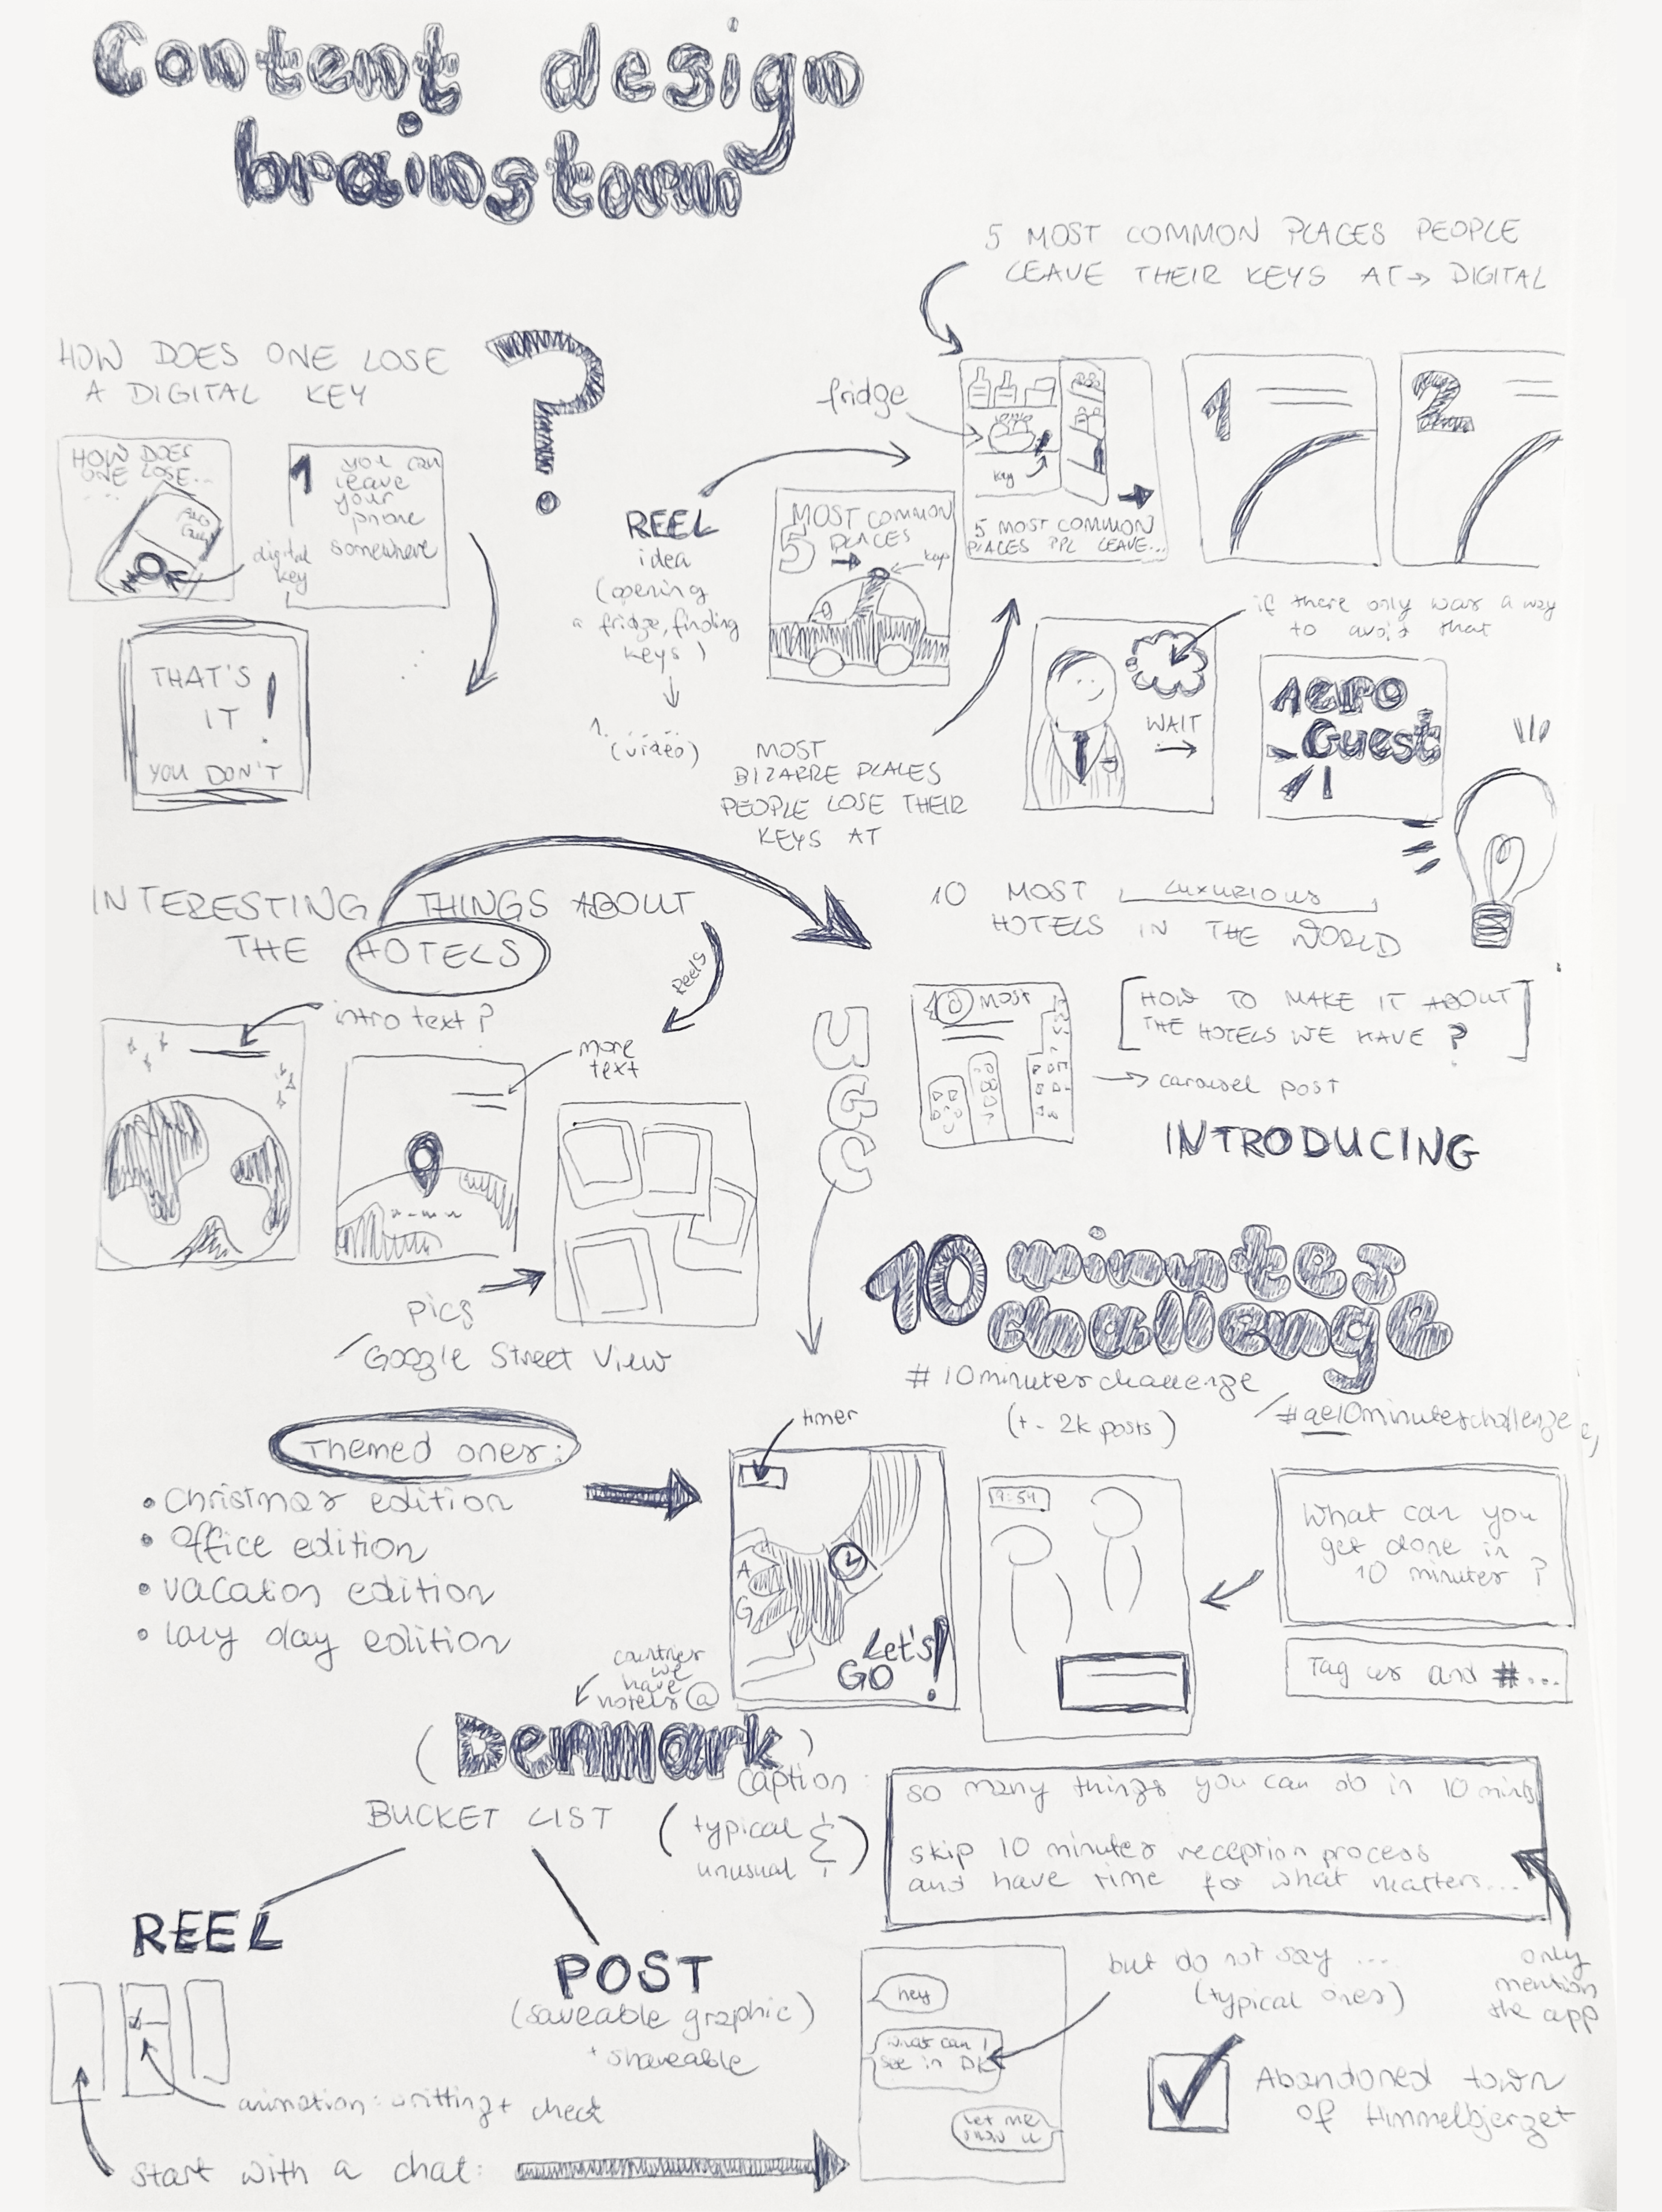 Content design
brainstorm
5 MOST COMMON PLACES PEOPLE
LEAVE THEIR KEYS AT → DIGITAL
HOW DOES ONE LOSE
A DIGITAL KEY
?
HOW DOES
ONE LOSE...
digital
key
1 you can
leave
your
phone
somewhere
THAT'S
IT !
YOU DON'T
REEL
idea
(opening
a fridge, finding
keys)
1. ...
(video)
fridge
key
5 MOST COMMON
PLACES PPL LEAVE...
1
2
5 MOST COMMON
PLACES
keys
MOST
BIZARRE PLACES
PEOPLE LOSE THEIR
KEYS AT
if there only was a way
to avoid that
WAIT
Aero
Guest
INTERESTING THINGS ABOUT
THE HOTELS
Reels
intro text?
more
text
pics
/Google Street View
10 MOST luxurious
HOTELS IN THE WORLD
10 MOST
[HOW TO MAKE IT ABOUT
THE HOTELS WE HAVE?]
→ carousel post
INTRODUCING
10 minutes
challenge
#10minuteschallenge
(+- 2k posts)
/#ae10minuteschallenge
Themed ones:
• Christmas edition
• Office edition
• vacation edition
• lazy day edition
timer
A
G
Let's
GO!
9:59
What can you
get done in
10 minutes?
Tag us and #...
countries
we
have
hotels @
(Denmark)
BUCKET LIST
(typical &
unusual)
caption:
so many things you can do in 10 mins
skip 10 minutes reception process
and have time for what matters...
only
mention
the app
REEL
POST
(saveable graphic)
+ shareable
animation: writting + check
start with a chat:
hey
what can I
see in DK
Let me
show u
but do not say ...
(typical ones)
Abandoned town
of Himmelbjerget